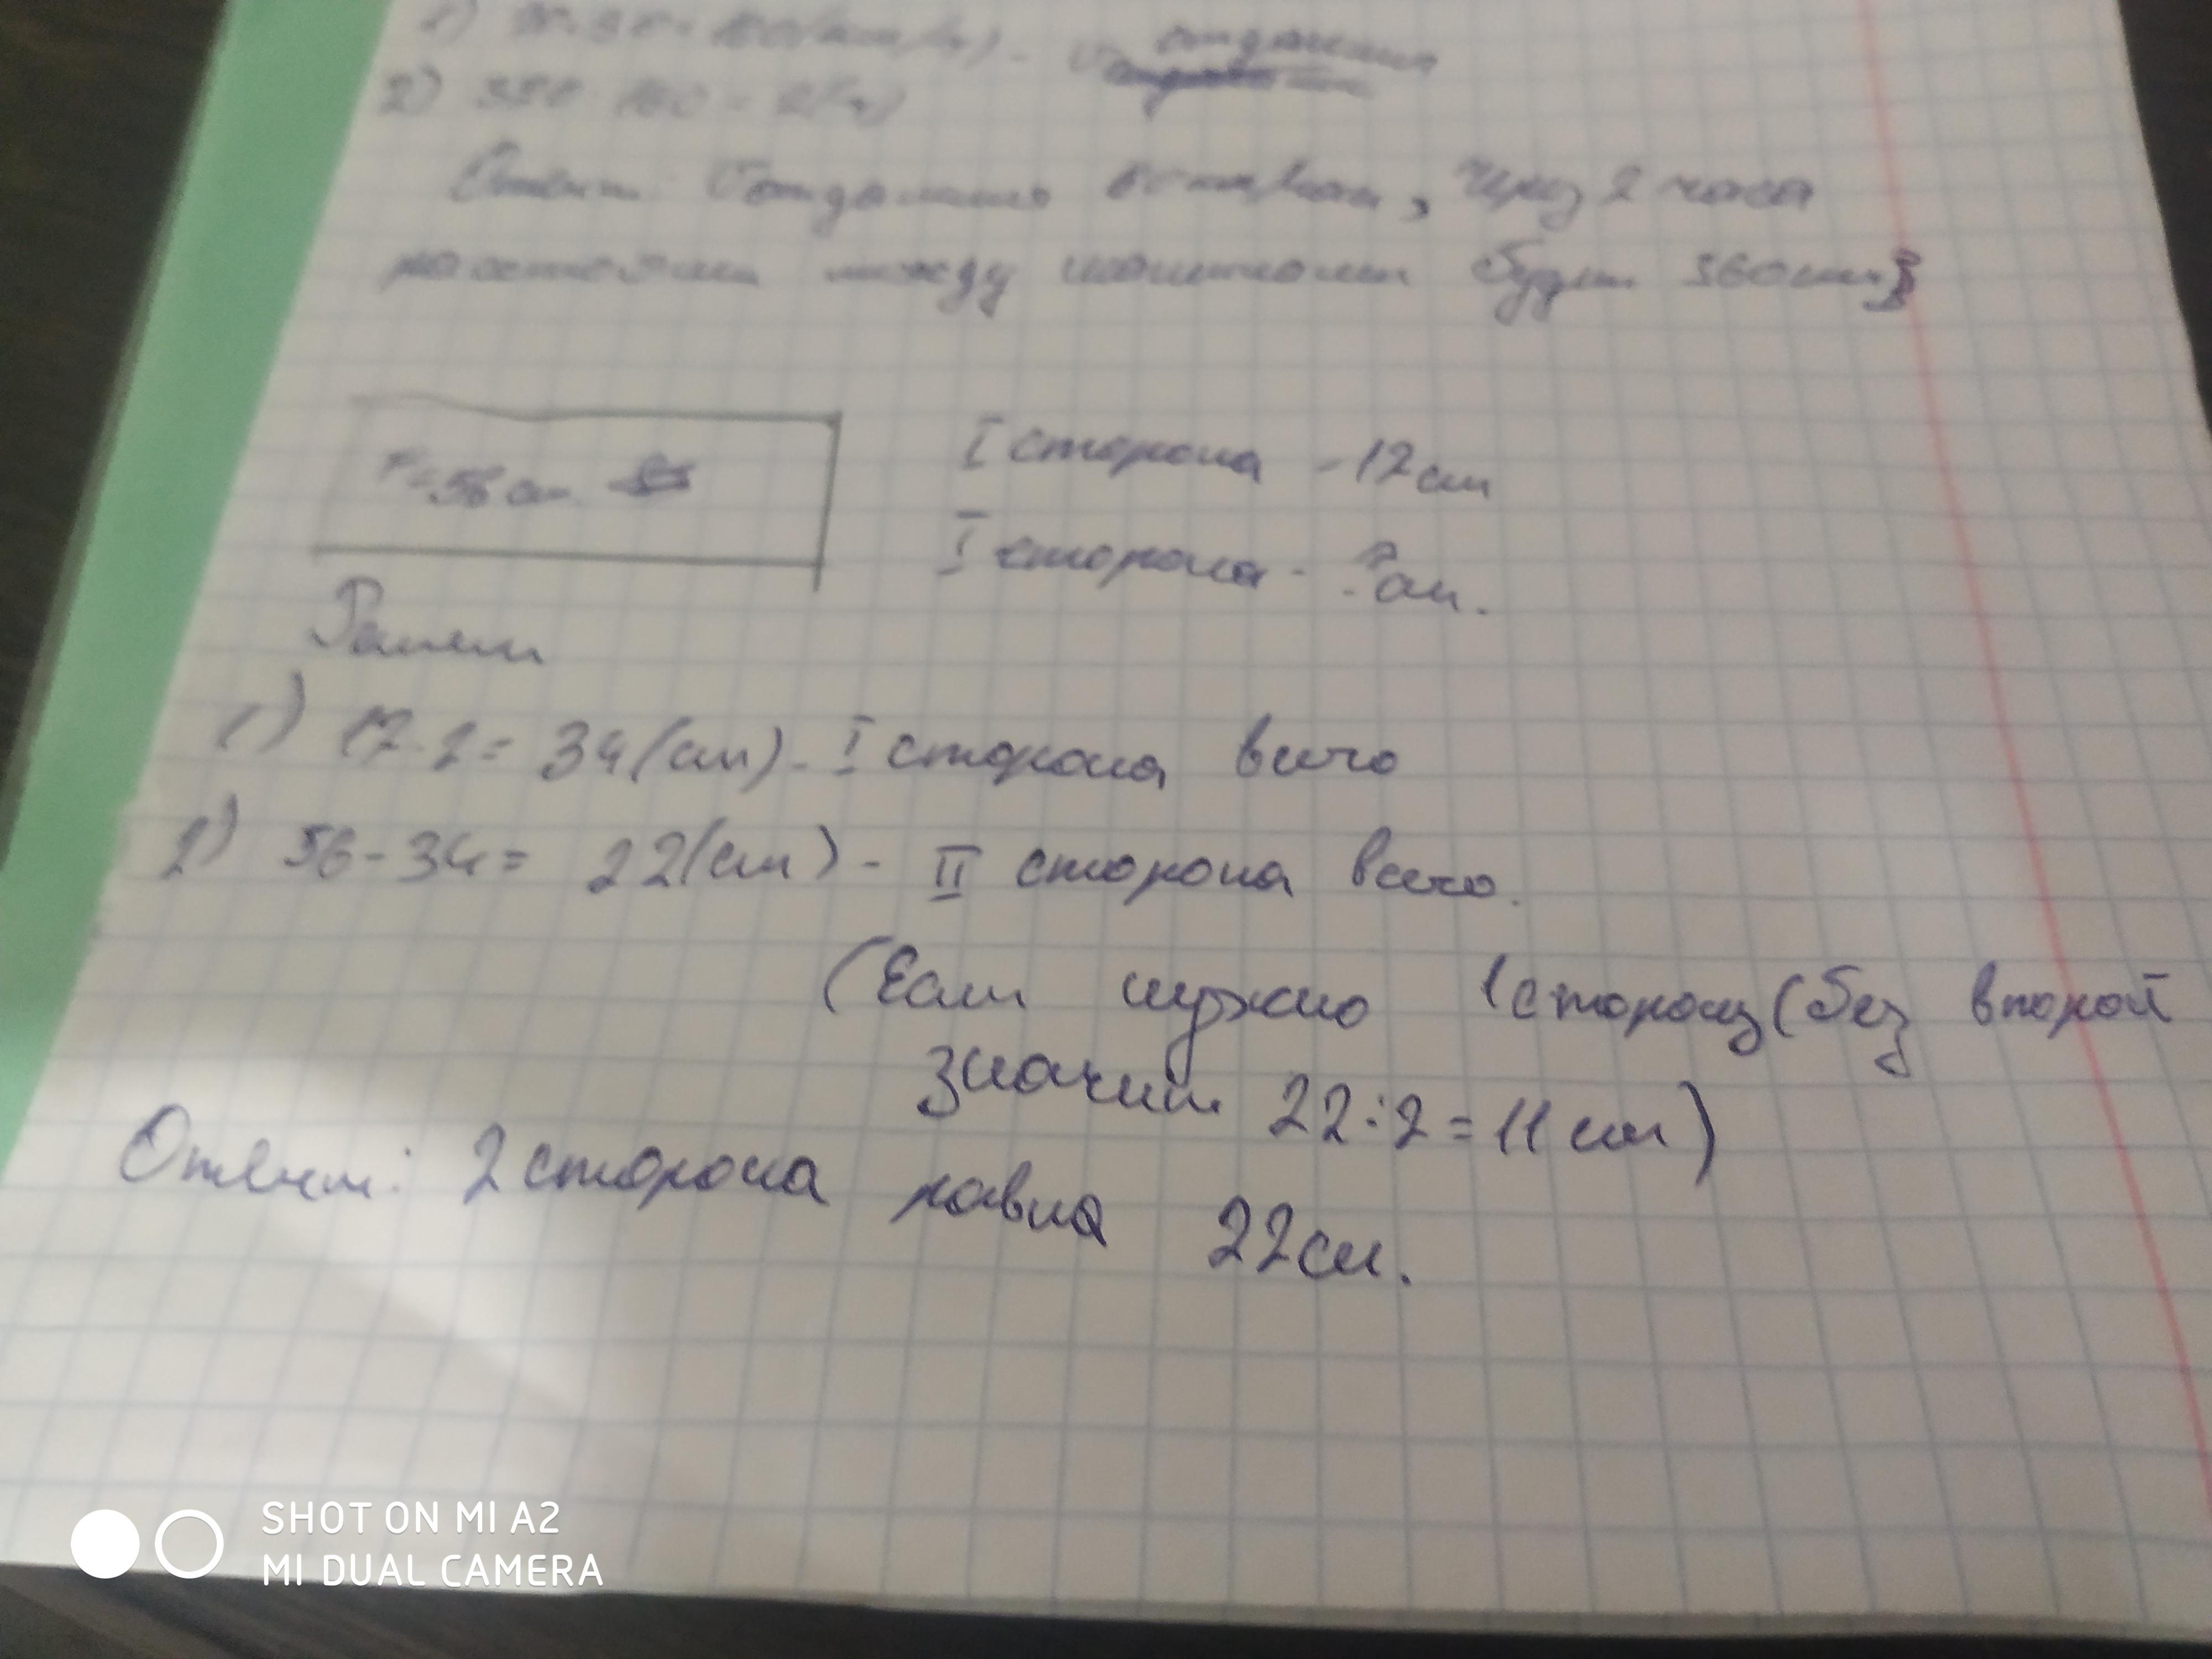 2)
Ответ: Vотдаления , через 2 часа
расстояни между машинами будет 360км
P=56см
I сторона - 17см
I сторона - ? см.
Решен
1) 17·2= 34(см)- I сторона всего
2) 56-34= 22(см) - II сторона всего.
(Если нужно 1 сторону (без второй
значит 22:2=11 см)
Ответ: 2 сторона равна 22см.
SHOT ON MI A2
MI DUAL CAMERA